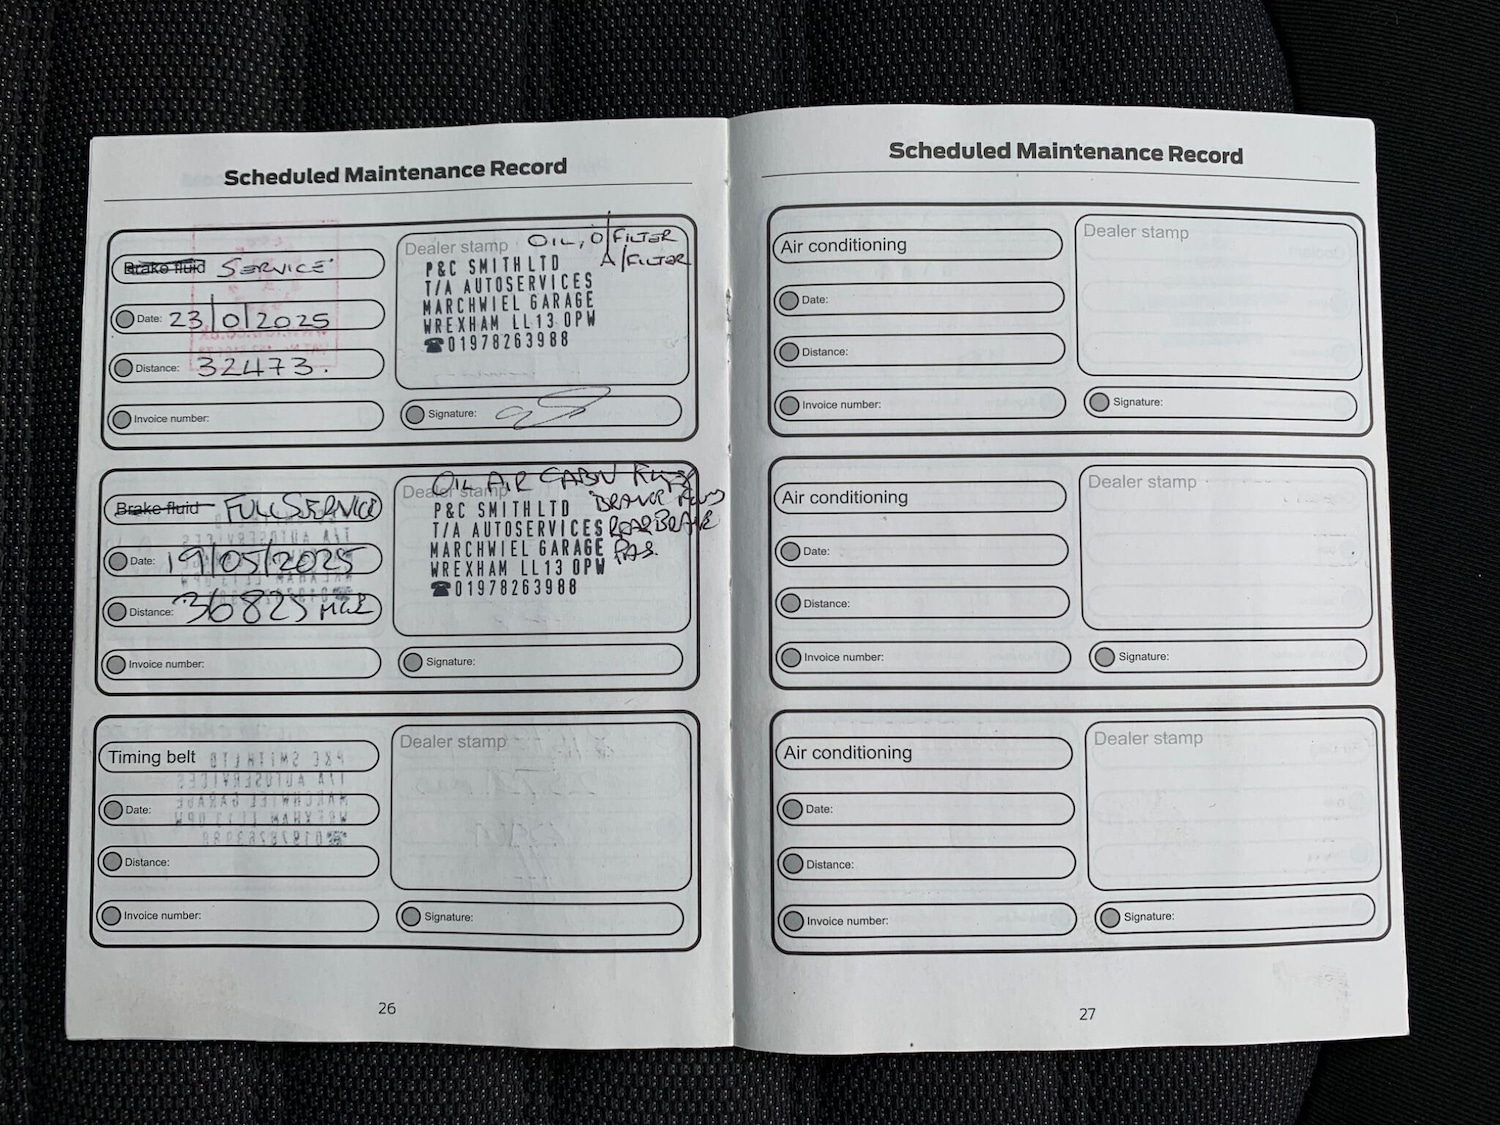 Scheduled Maintenance Record
Brake fluid SERVICE
Date: 23/0/2025
Distance: 32473.
Invoice number:
Dealer stamp OIL, O/FILTER
A/FILTER
P&C SMITH LTD
T/A AUTOSERVICES
MARCHWIEL GARAGE
WREXHAM LL13 0PW
☎01978263988
Signature:
Brake fluid FULL SERVICE
Date: 19/05/2025
Distance: 36825
Invoice number:
OIL AIR CABIN
Dealer stamp
P&C SMITH LTD
T/A AUTOSERVICES REAR BRAKE
MARCHWIEL GARAGE PADS.
WREXHAM LL13 0PW
☎01978263988
Signature:
Timing belt
Date:
Distance:
Invoice number:
Dealer stamp
Signature:
26
Scheduled Maintenance Record
Air conditioning
Date:
Distance:
Invoice number:
Dealer stamp
Signature:
Air conditioning
Date:
Distance:
Invoice number:
Dealer stamp
Signature:
Air conditioning
Date:
Distance:
Invoice number:
Dealer stamp
Signature:
27